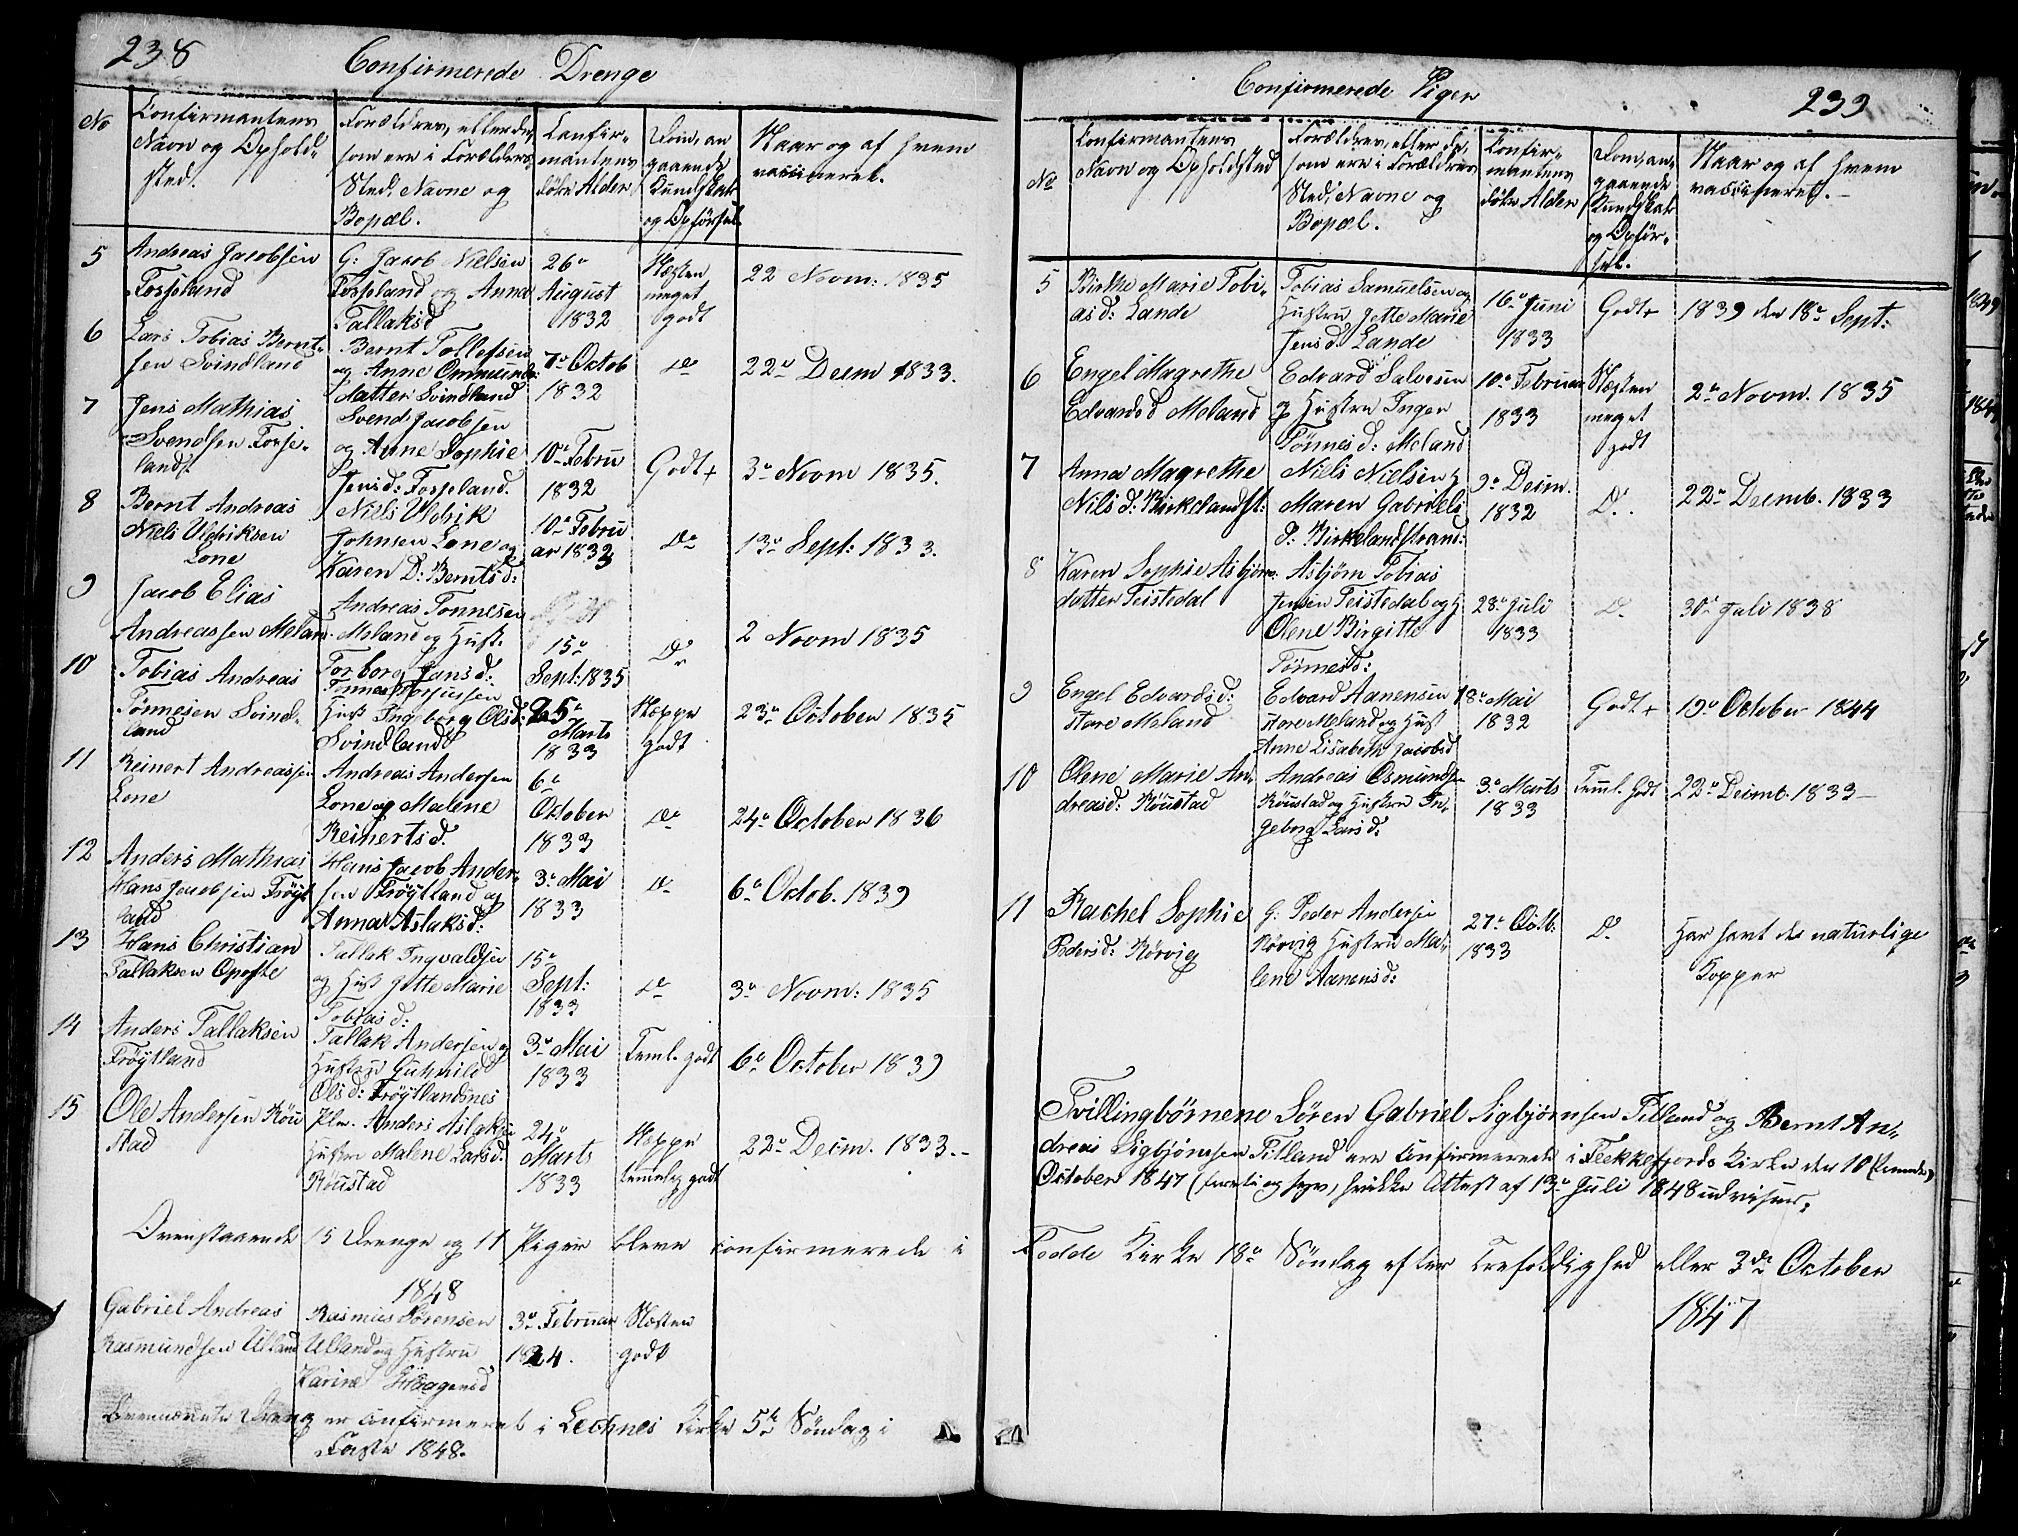 238
Confirmerede Drenge
No
Confirmantens
Navn og Ophold-
sted.
Forældres, eller de,
som ere i Forældres
Sted, Navne og
Bopæl.
Confir-
mantens
Alder
Dom, an
gaaende
Kundskab
og Opførsel
Naar og af hvem
vaccineret.
5
Andreas Jacobsen
Fosseland
G: Jacob Nielsen
Fosseland og Anna
Tallaksd
26de
August
1832
Næsten
meget
godt
22 Novm: 1835
6
Lars Tobias Bernt-
sen Svindland
Bernt Tollefsen
og Anne Ommunds-
datter Svindland
7de Octob
1832
Do
22de Decm 1833.
7
Jens Mathias
Svendsen Fosse-
land
Svend Jacobsen
og Anne Sophie
Jensd: Fosseland.
10de Febru
1832
Godt +
3de Novm 1835.
8
Bernt Andreas
Niels Uldriksen
Lone
Niels Uldrik
Johnsen Lone og
Karen D: Berntsd:
10de Febru
ar 1832
Do
13de Sept: 1833.
9
Jacob Elias
Andreassen Meland
Andreas Tønnesen
Meland og Hust.
Torborg Jansd:
15de
Sept: 1835
Do
2 Novm 1835
10
Tobias Andreas
Tønnesen Svind-
land
Hust Ingeborg Olsd:
Svindland
25de
Marts
1833
Næppe
godt
23de October 1835
11
Reinert Andreassen
Lone
Andreas Andersen
Lone og Malene
Reinertsd.
6te
October
1833
Do
24de October 1836
12
Anders Mathias
Hans Jacobsen Frøyt
land
Hans Jacob Ander-
sen Frøytland og
Anna Aslaksd:
3de Mai
1833
Do
6te Octob. 1839
13
Hans Christian
Tallaksen Opofte
Tallak Ingvaldsen
og Hust Jette Marie
Tobiasd:
15de
Sept:
1833
Do
3de Novm: 1835
14
Anders Tallaksen
Frøytland
Tallak Andersen og
Hustru Guhnild
Olsd: Frøytlandsnes
3de Mai
1833
Teml. godt
6te October 1839
15
Ole Andersen Røu
stad
Anders Aslaksen
Hustru Malene Larsd:
Røustad
24de
Marts
1833
Næppe
temelig godt
22de Decm. 1833.-
Ovenstaaende 15 Drenge og 11 Piger bleve confirmerede i
1848
1
Gabriel Andreas
Rasmundsen Ulland
Rasmus Sørensen
Ulland og Hustru
Karine Haagensd
3de Februar
1824.
Næsten
godt
Dreng er confirmeret i Lechnes Kirke 5te Søndag i
Faste 1848.
Confirmerede Piger
239
No
Confirmantens
Navn og Opholdsted
Forældres, eller de,
som ere i Forældres
Sted, Navne og
Bopæl.
Confir-
mantens
Alder
Dom, an-
gaaende
Kundskab
og Opfør-
sel.
Naar og af hvem
vaccineret.-
5
Birthe Marie Tobi-
asd: Lande
Tobias Samuelsen og
Hustru Jette Marie
Jensd Lande
16de Juni
1833
Godt +
1839 den 18de Sept:
6
Engel Magrethe
Edvardsd Meland
Edvard Salvesen
og Hustru Inger
Tønnesd: Meland
10de Februar
1833
Næsten
meget
godt
2de Novm. 1835
7
Anna Magrethe
Nilsd: Birkelandst:
Niels Nielsen og
Maren Gabriels
D: Birkelandstrand:
9de Decm.
1832
Do.
22de Decmb. 1833
8
Karen Sophie Asbjørns
datter Teistedal
Asbjørn Tobias
Jensen Teistedal og H
Olene Birgitte
Tønnesd:
28de Juli
1833
Do
30de Juli 1838
9
Engel Edvardsd:
store Meland
Edvard Aanensen
store Meland og Hust
Anne Lisabeth Jacobsd
18de Mai
1832
Godt +
19de October 1844
10
Olene Marie An-
dreasd: Røustad
Andreas Osmundsen
Røustad og Hustru In-
geborg Larsd:
3de Marts
1833
Teml. godt
22de Decmb. 1833-
11
Rachel Sophie
Pedersd: Rørvig
G: Peder Andersen
Rørvig Hustru Ma-
lene Aanensd:
27de Octb:
1833
Do
Har havt de naturlige
Kopper
Tvillingbørnene Søren Gabriel Sigbjørnsen Tilland og Bernt An-
dreas Sigbjørnsen Tilland ere Confirmerede i Fleckefjords Kirke den 10 (tiende)
October 1847 (førti og syv, hvilke Attest af 13de Juli 1848 udviser.
Fedde Kirke 18de Søndag efter Trefoldighed eller 3die October
1847